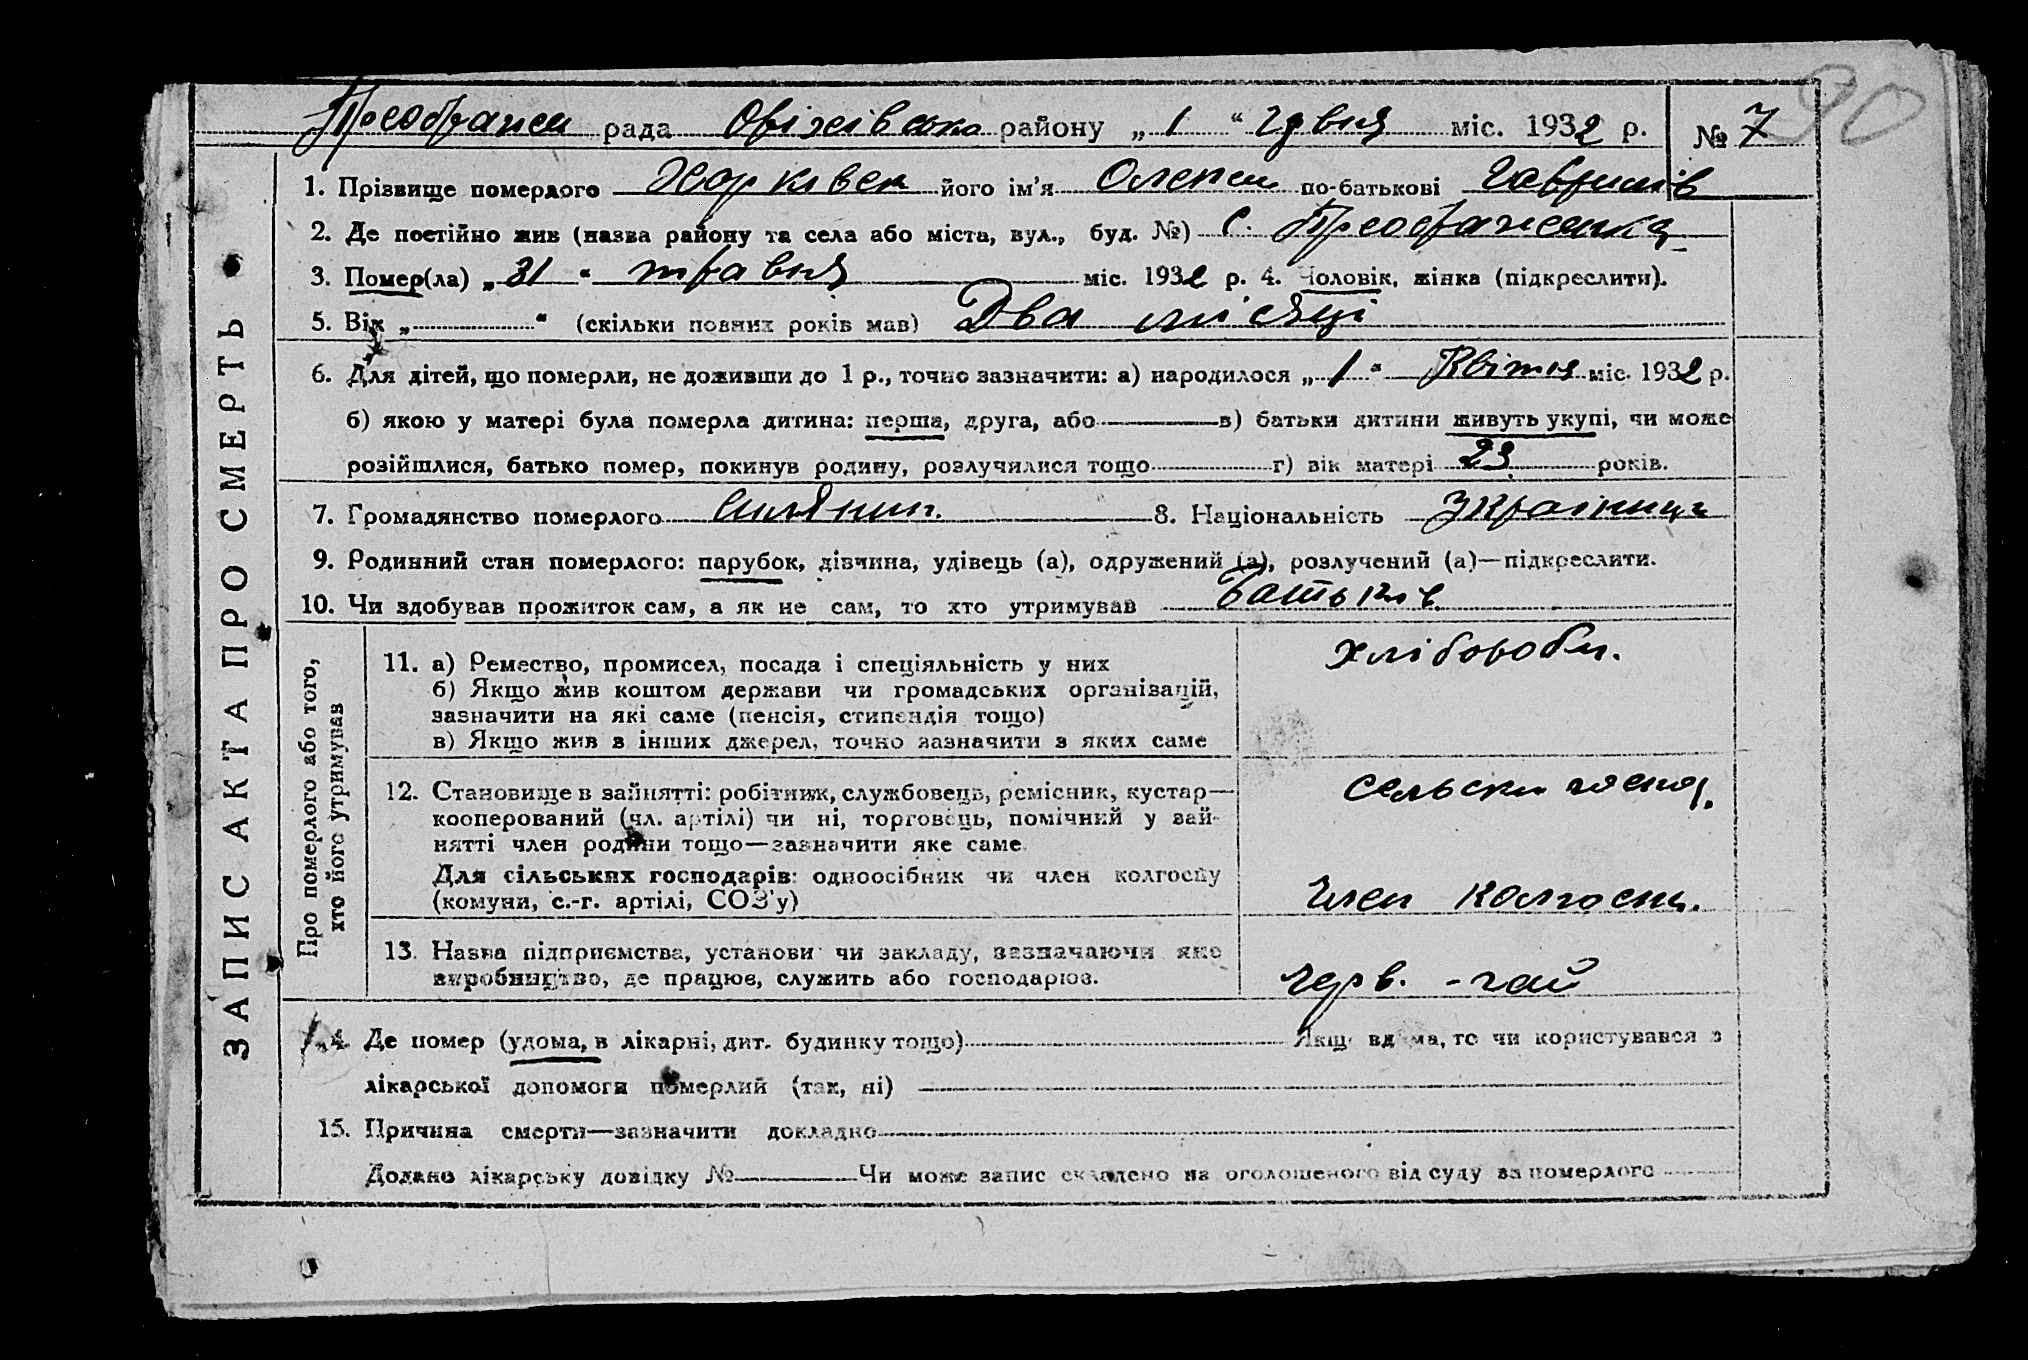 90
Преображен рада Оріхівсько району „ 1 “ червня міс. 1932 р. № 7
ЗАПИС АКТА ПРО СМЕРТЬ
1. Прізвище померлого його ім'я Олексій по-батькові Гаврилів
2. Де постійно жив (назва району та села або міста, вул., буд. №) с. Преображенка
3. Помер(ла) „ 31 “ травня міс. 1932 р. 4. Чоловік, жінка (підкреслити).
5. Вік „ “ (скільки повних років мав) Два місяці
6. Для дітей, що померли, не доживши до 1 р., точно зазначити: а) народилося „ 1 “ Квітня міс. 1932 р.
б) якою у матері була померла дитина: перша, друга, або в) батьки дитини живуть укупі, чи може
розійшлися, батько помер, покинув родину, розлучилися тощо г) вік матері 23 років.
7. Громадянство померлого 8. Національність Українець
9. Родинний стан померлого: парубок, дівчина, удівець (а), одружений (а), розлучений (а)—підкреслити.
10. Чи здобував прожиток сам, а як не сам, то хто утримував Батьків
Про померлого або того,
хто його утримував
11. а) Ремество, промисел, посада і спеціяльність у них хлібороби.
б) Якщо жив коштом держави чи громадських організацій,
зазначити на які саме (пенсія, стипендія тощо)
в) Якщо жив з інших джерел, точно зазначити з яких саме
12. Становище в зайнятті: робітник, службовець, ремісник, кустар— сельски
кооперований (чл. артілі) чи ні, торговець, помічний у зай-
нятті член родини тощо—зазначити яке саме
Для сільських господарів: одноосібник чи член колгоспу член колгоспу.
(комуни, с.-г. артілі, СОЗ'у)
13. Назва підприємства, установи чи закладу, зазначаючи яке
виробництво, де працює, служить або господарює. Черв. - гай
14. Де помер (удома, в лікарні, дит. будинку тощо) Якщо вдома, то чи користувався з
лікарської допомоги померлий (так, ні)
15. Причина смерти—зазначити докладно
Додано лікарську довідку № Чи може запис складено на оголошеного від суду за померлого